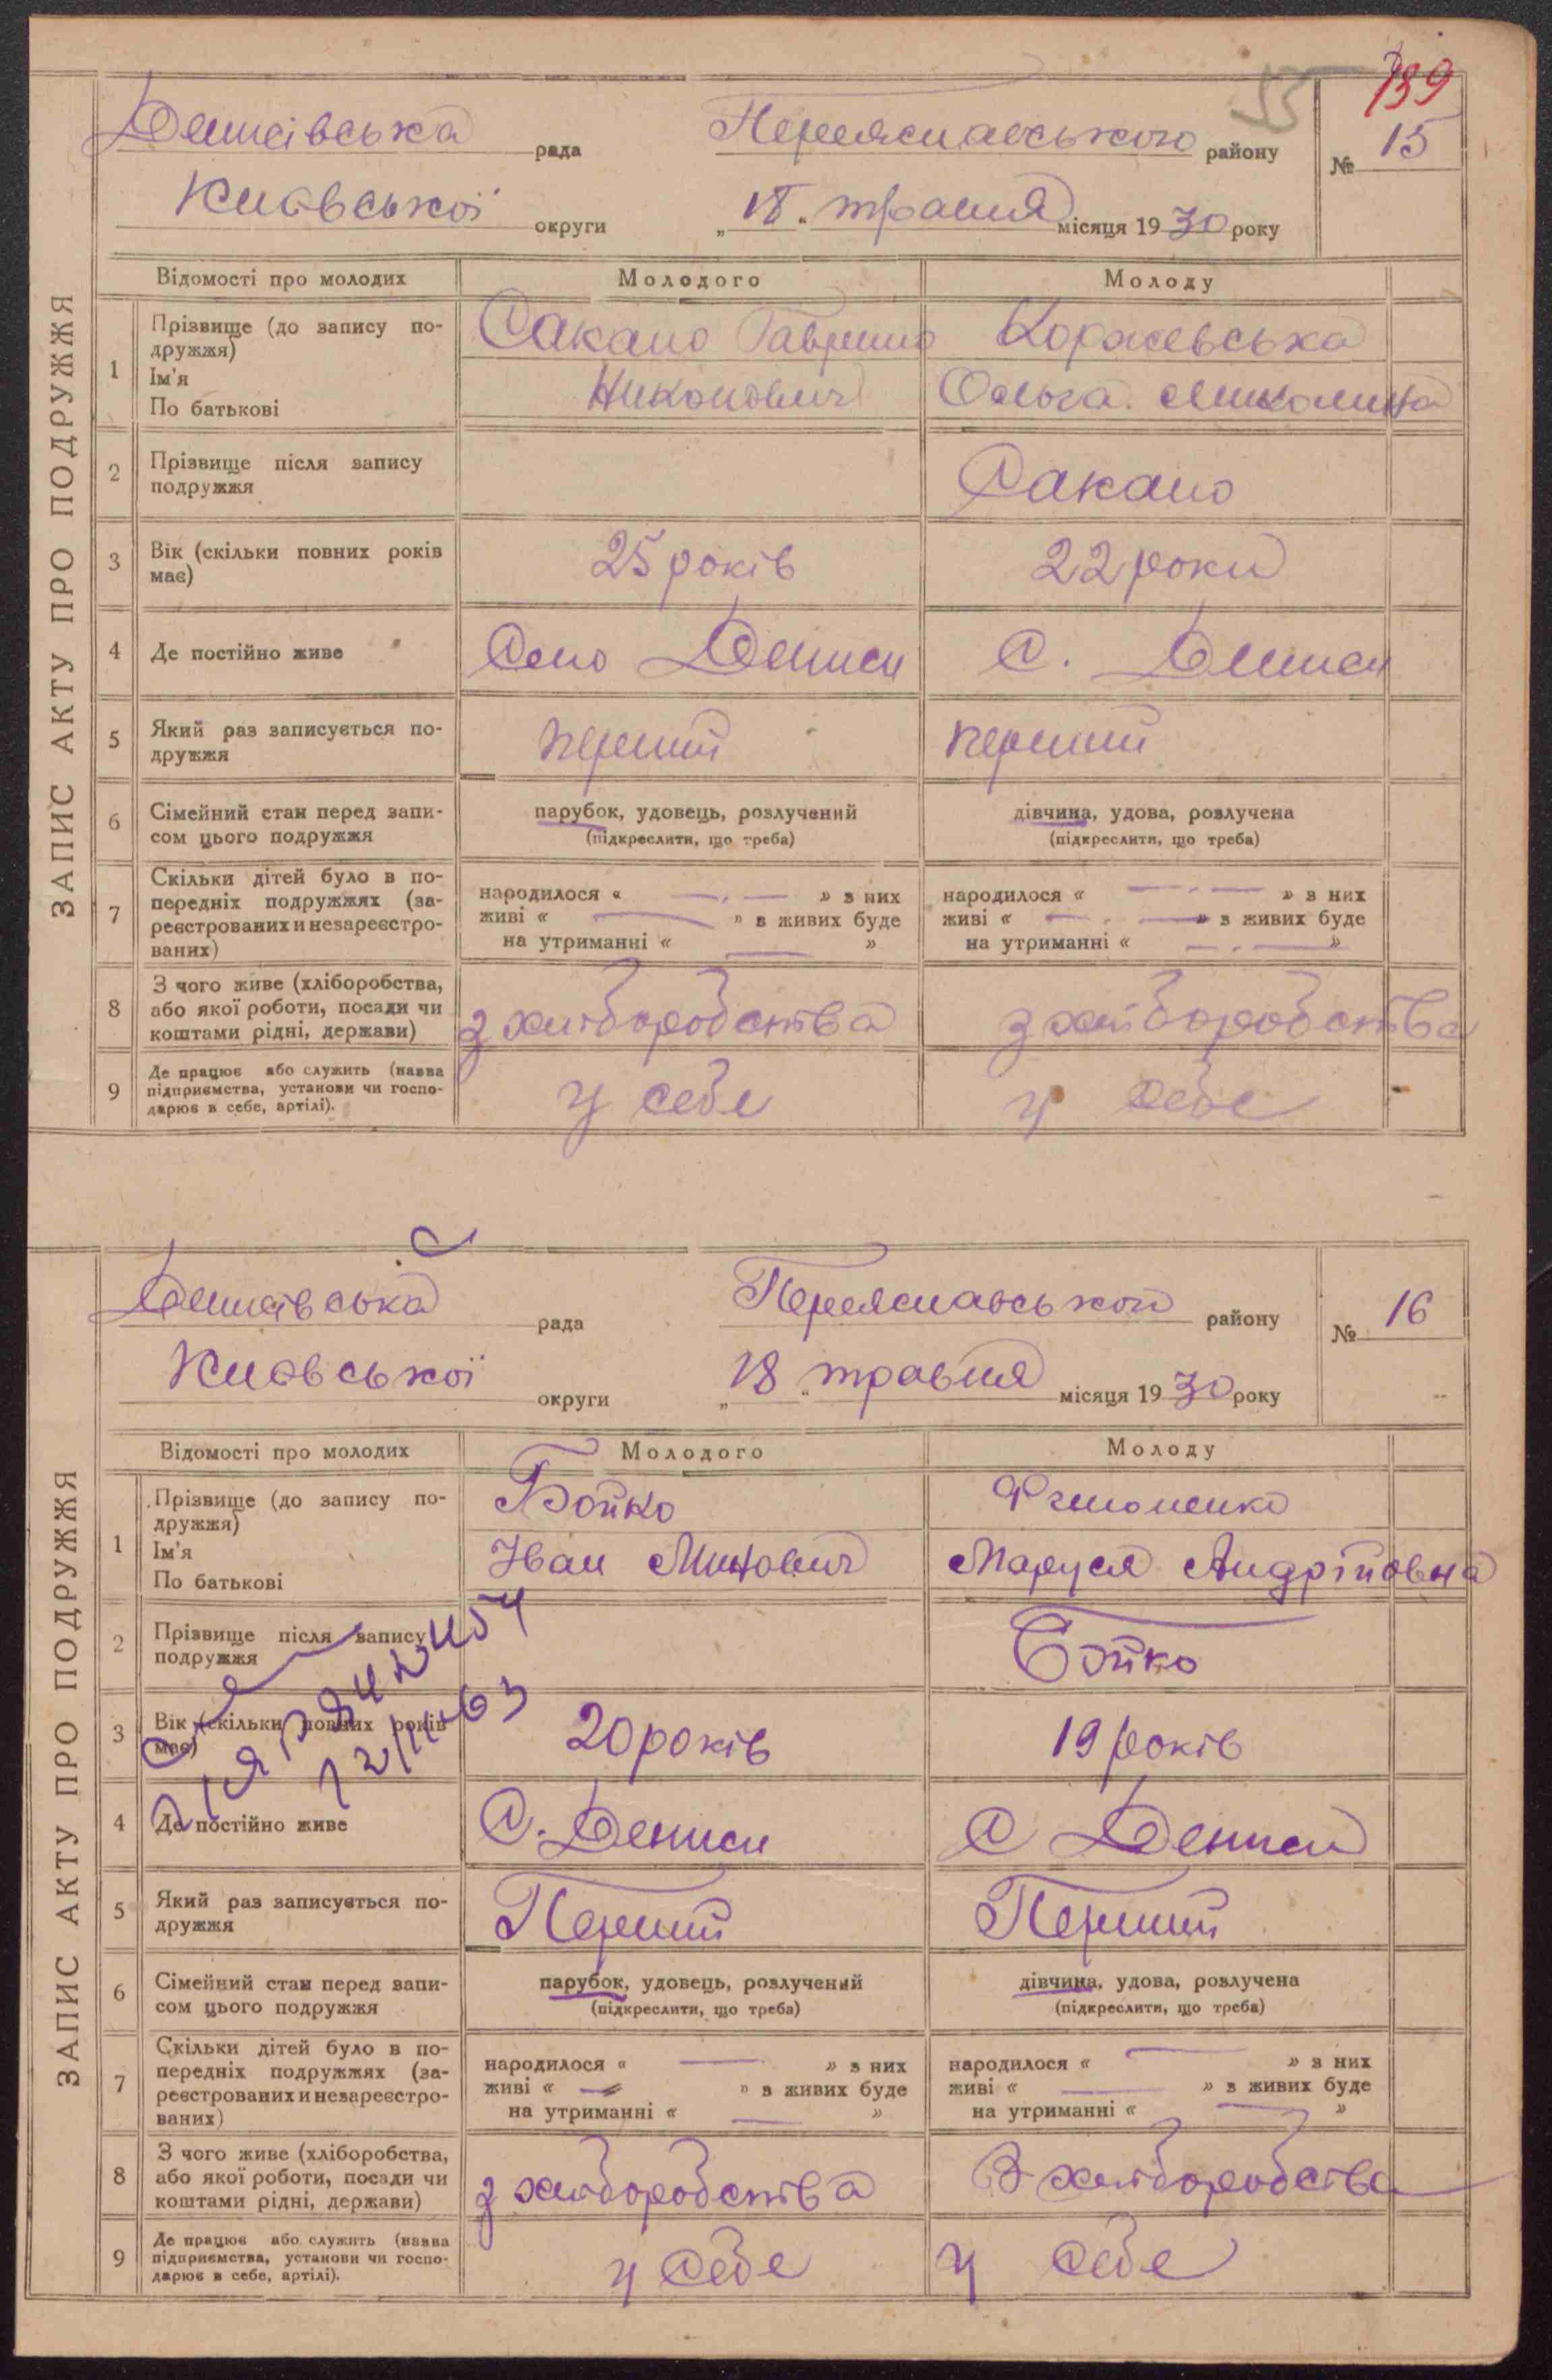 139
55
Денисівська рада Переяславського району № 15
Київської округи „18" травня місяця 1930 року
ЗАПИС АКТУ ПРО ПОДРУЖЖЯ
Відомості про молодих Молодого Молоду
1 Прізвище (до запису по-
дружжя)
Ім'я
По батькові
Сакало Гаврило
Никонович
Коржевська
Ольга Миколаївна
2 Прізвище після запису
подружжя
Сакало
3 Вік (скільки повних років
має)
25 років 22 роки
4 Де постійно живе Село Дениси С. Дениси
5 Який раз записується по-
дружжя
перший перший
6 Сімейний стан перед запи-
сом цього подружжя
парубок, удовець, розлучений
(підкреслити, що треба)
дівчина, удова, розлучена
(підкреслити, що треба)
7 Скільки дітей було в по-
передніх подружжях (за-
реєстрованих и незареєстро-
ваних)
народилося « — » з них
живі « — » в живих буде
на утриманні « — »
народилося « — » з них
живі « — » з живих буде
на утриманні « — »
8 З чого живе (хліборобства,
або якої роботи, посади чи
коштами рідні, держави)
з хліборобства з хліборобства
9 Де працює або служить (назва
підприємства, установи чи госпо-
дарює в себе, артілі).
у себе у себе
Денисівська рада Переяславської району № 16
Київської округи „18" травня місяця 1930 року
ЗАПИС АКТУ ПРО ПОДРУЖЖЯ
Відомості про молодих Молодого Молоду
1 Прізвище (до запису по-
дружжя)
Ім'я
По батькові
Бойко
Іван Минович
Маруся Андріївна
2 Прізвище після запису
подружжя
Бойко
3 Вік (скільки повних років
має)
20 років 19 років
4 Де постійно живе С. Дениси С Дениси
5 Який раз записується по-
дружжя
Перший Перший
6 Сімейний стан перед запи-
сом цього подружжя
парубок, удовець, розлучений
(підкреслити, що треба)
дівчина, удова, розлучена
(підкреслити, що треба)
7 Скільки дітей було в по-
передніх подружжях (за-
реєстрованих и незареєстро-
ваних)
народилося « — » з них
живі « — » в живих буде
на утриманні « — »
народилося « — » з них
живі « — » з живих буде
на утриманні « — »
8 З чого живе (хліборобства,
або якої роботи, посади чи
коштами рідні, держави)
з хліборобства З хліборобства
9 Де працює або служить (назва
підприємства, установи чи госпо-
дарює в себе, артілі).
у себе у себе